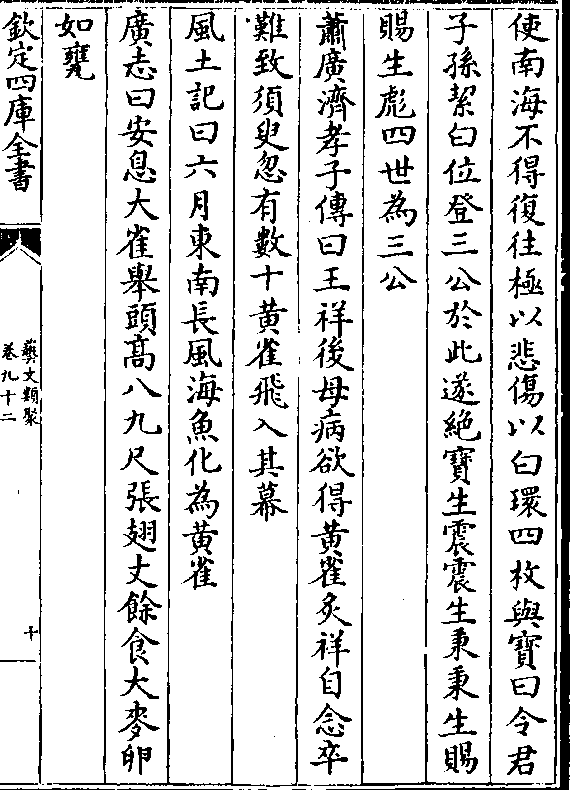 使南海不得復往極以悲傷以白環四枚與寶曰令君
子孫絜白位登三公於此遂絶寶生震震生秉秉生賜
賜生彪四世為三公
蕭廣濟孝子傳曰王祥後母病欲得黄雀炙祥自念卒
難致須臾忽有數十黄雀飛入其幕
風土記曰六月東南長風海魚化為黄雀
廣志曰安息大雀舉頭髙八九尺張翅丈餘食大麥卵
如甕
欽定四庫全書
藝文類聚
卷九十二
十